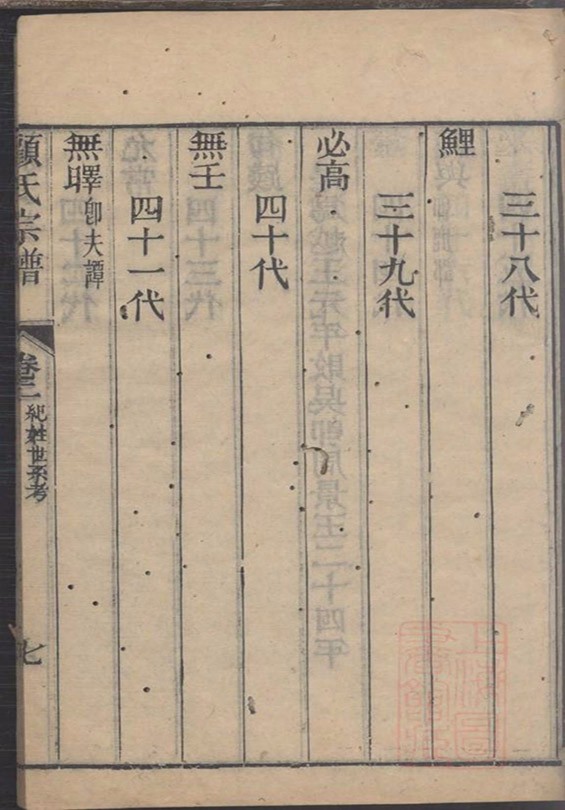 三十八代
鯉
三十九代
必高
四十代
無壬
四十一代
無㬜即夫譚
顧氏宗譜
卷二 紀姓世系考
七